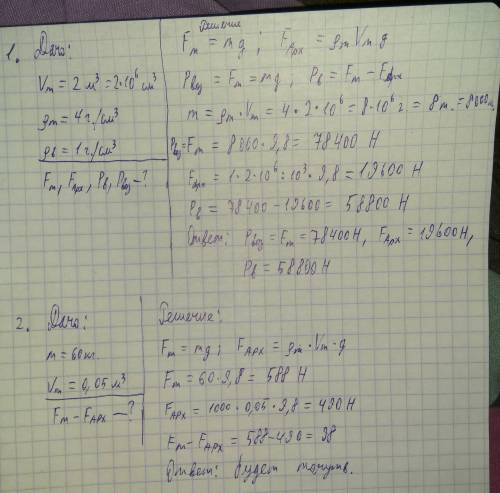 1. Дано:
Vт = 2 м³ = 2·10⁶ см³
ρт = 4 г/см³
ρв = 1 г/см³
Fт, Fарх, Pв, Pвоз — ?
Решение
Fт = mg ; FАрх = ρт Vт·g
Pвоз = Fт = mg, Pв = Fт – FАрх
m = ρт·Vт = 4·2·10⁶ = 8·10⁶ г. = 8т. = 8000
Pвоз = Fт = 8000·9,8 = 78400 Н
Fарх = 1·2·10⁶:10³·9,8 = 19600 Н
Pв = 78400 – 19600 = 58800 Н
Ответ: Pвоз = Fт = 78400Н, FАрх = 19600Н,
Pв = 58800Н
2. Дано:
m = 60 кг.
Vт = 0,05 м³
Fт – FАрх — ?
Решение:
Fт = mg ; FАрх = ρт·Vт·g
Fт = 60·9,8 = 588 Н
FАрх = 1000·0,05·9,8 = 490Н
Fт – FАрх = 588 – 490 = 98
Ответ: будет тонуть.